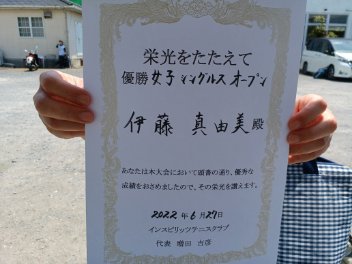 栄光をたたえて
優勝 女子シングルス オープン
伊藤 真由美 殿
あなたは本大会において頭書の通り、優秀な
成績をおさめましたので、その栄光を讃えます。
2022年6月27日
インスピリッツテニスクラブ
代表 増田 吉彦